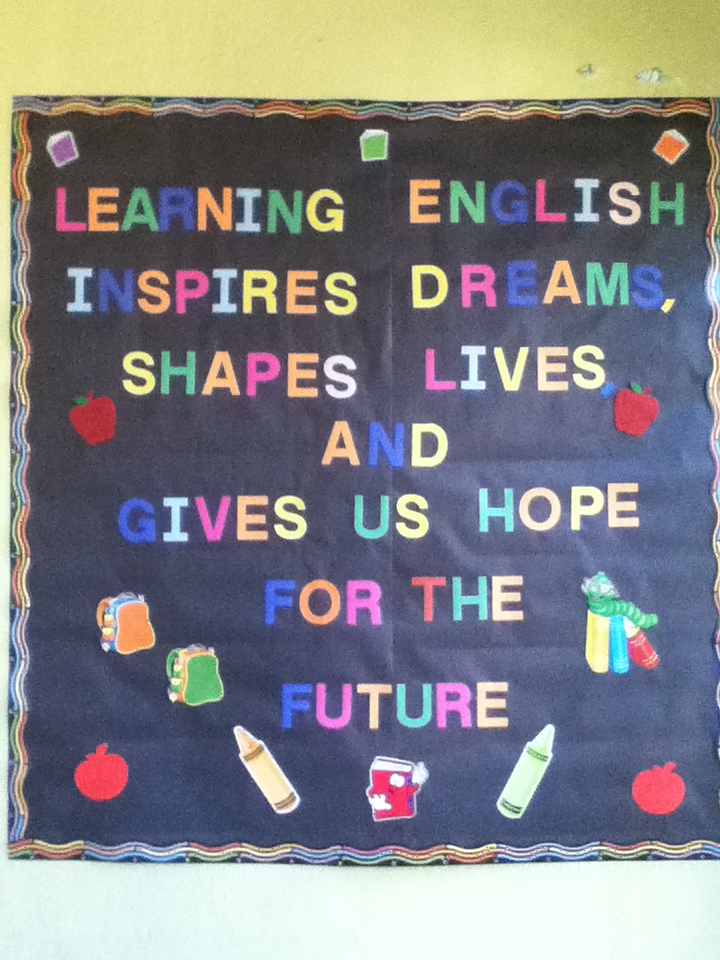 LEARNING ENGLISH
INSPIRES DREAMS,
SHAPES LIVES,
AND
GIVES US HOPE
FOR THE
FUTURE